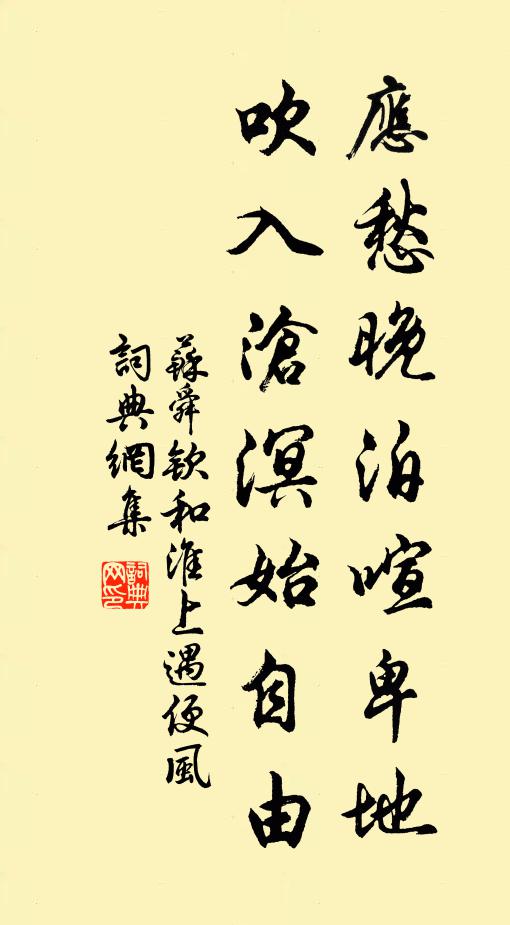 應愁晚泊喧卑地
吹入滄溟始自由
蘇舜欽和淮上遇便風
詞典網集
詞典网印